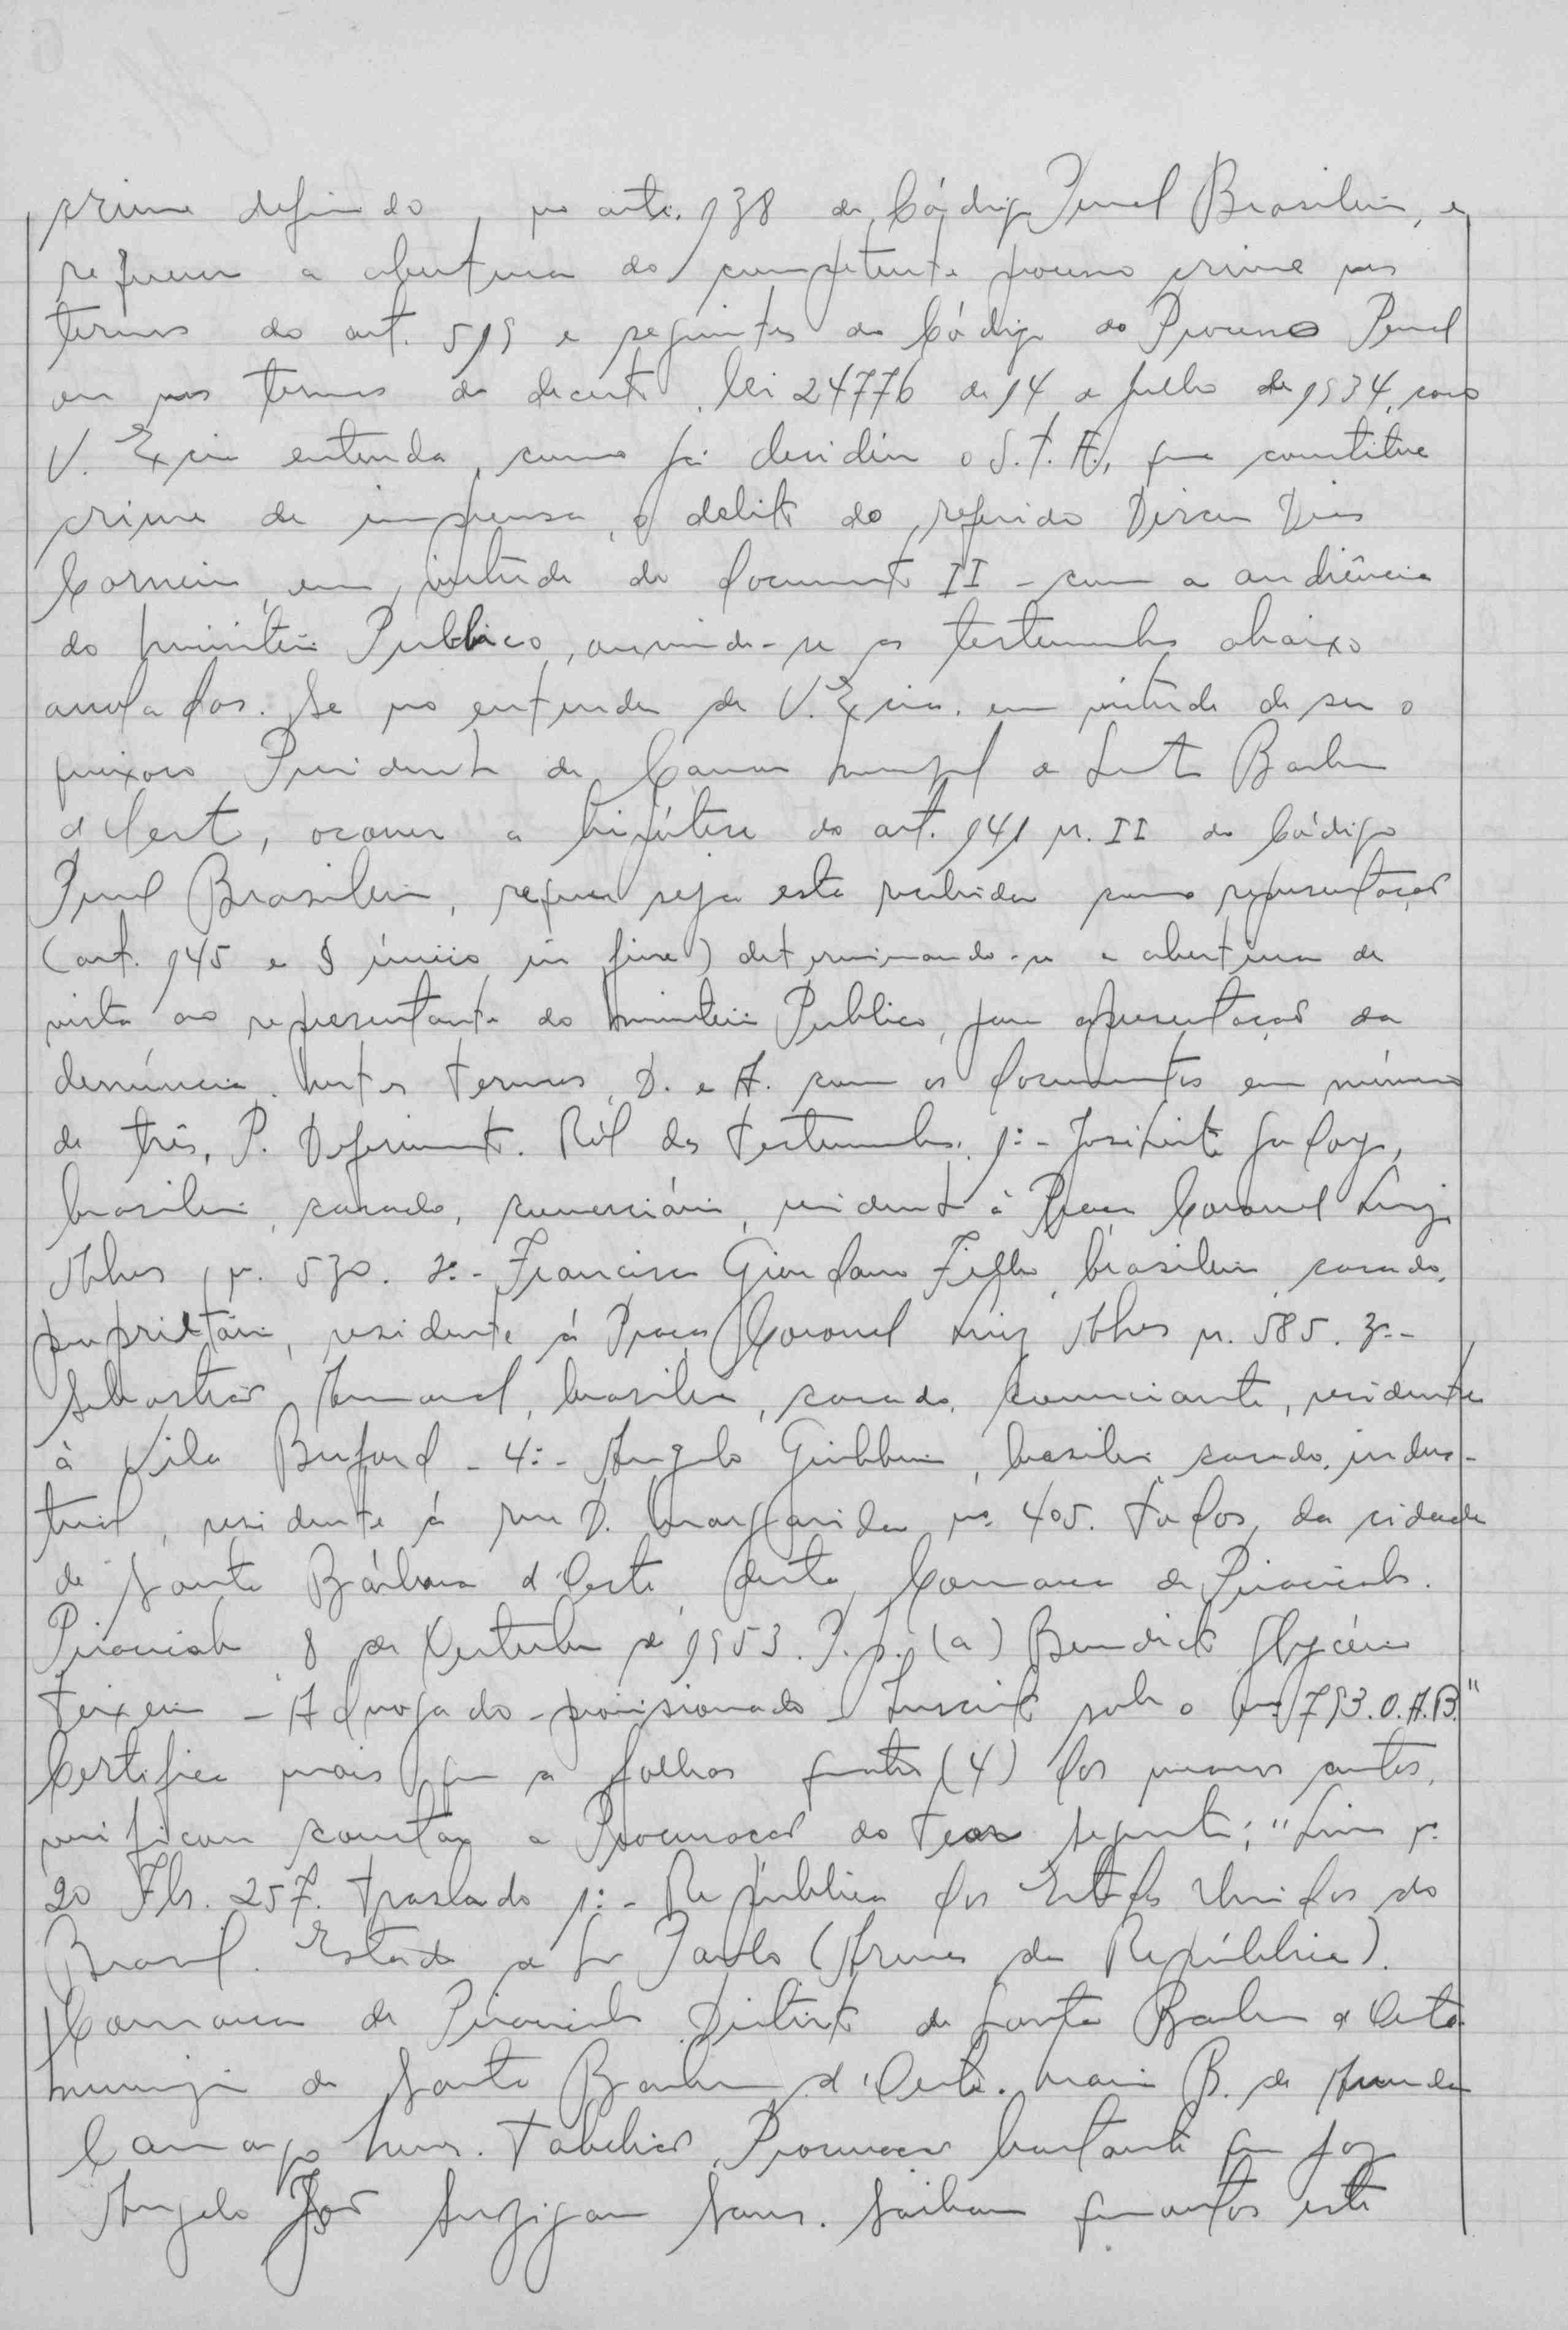 crime definido, no arti. 138 do Código Penal Brasileiro, e
requerer a abertura do competente processo crime nos
termos do art. 519 e seguintes do Código do Processo Penal
ou nos termos do decreto lei 24776 de 14 de julho de 1934, caso
V. Excia entenda, como já decidiu o S.T.F., que constitue
crime de imprensa, o delito do referido Dirceu Dias
Carneiro, em virtude do documento II - com a audiência
do Ministério Publico, ouvindo-se as testemunhas abaixo
arroladas. Se no entender de V. Excia. em virtude de ser o
queixoso Presidente da Camara Municipal de Santa Barbara
d'Oeste, ocorrer a hipótese do art. 141 n. II do Código
Penal Brasileiro, requer seja esta recebida como representação
(art. 145 e § único in fine) determinando-se a abertura de
vista ao representante do Ministério Publico, para apresentação da
denúncia. Nestes termos, D. e A. com os documentos em número
de três, P. Deferimento. Ról das testemunhas. 1º- Godoy,
brasileiro, casado, comerciário, residente à Praça Coronel Luiz
Alves, n. 530. 2º- Francisco Giordano Filho, brasileiro, casado,
proprietário, residente á Praça Coronel Luiz Alves n. 585. 3º-
Sebastião Amaral, brasileiro, casado, comerciante, residente
à Vila - 4º- Angelo Giubbina, brasileiro casado, indus-
trial, residente á rua D. Margarida nº 405. Todos, da cidade
de Santa Bárbara d'Oeste, desta Comarca de Piracicaba.
Piracicaba 8 de Setembro de 1953. P.p. (a) Benedicto Glycério
Teixeira - Advogado-provisionado - Inscrito sob o nº 793. O.A.B."
Certifica mais que a folhas quatro (4) dos mesmos autos,
verificou constar a Procuração do teor seguinte: "Livro nº
20 Fls. 257. Traslado 1º- República dos Estados Unidos do
Brasil. Estado de São Paulo (Armas da República).
Comarca de Piracicaba Distrito de Santa Barbara d'Oeste
Municipio de Santa Barbara d'Oeste. Maria B. de Arruda
Camargo Tabelião. Procuração bastante que faz
Angelo João Suzigan. Saibam quantos este